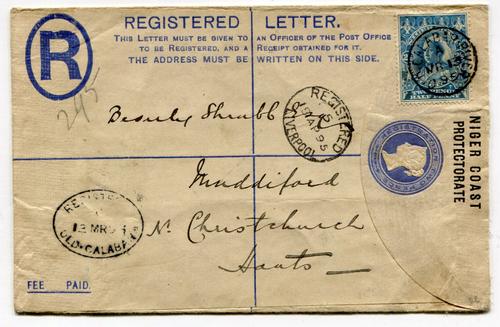 REGISTERED LETTER.
THIS LETTER MUST BE GIVEN TO AN OFFICER OF THE POST OFFICE
TO BE REGISTERED, AND A RECEIPT OBTAINED FOR IT.
THE ADDRESS MUST BE WRITTEN ON THIS SIDE.
R
245
TWO PENCE
HALF PENNY
REGISTERED
LIVERPOOL
REGISTRATION
NIGER COAST
PROTECTORATE
Muddiford
Nr. Christchurch
Hants
REGISTERED
OLD-CALABAR
FEE PAID.